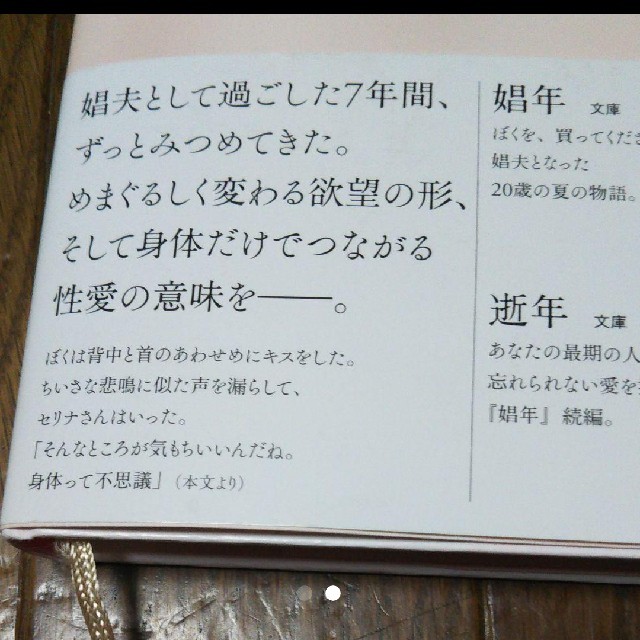 娼夫として過ごした7年間、
ずっとみつめてきた。
めまぐるしく変わる欲望の形、
そして身体だけでつながる
性愛の意味を――。
ぼくは背中と首のあわせめにキスをした。
ちいさな悲鳴に似た声を漏らして、
セリナさんはいった。
「そんなところが気もちいいんだね。
身体って不思議」（本文より）
娼年 文庫
ぼくを、買ってくださ
娼夫となった
20歳の夏の物語。
逝年 文庫
あなたの最期の人
忘れられない愛を
『娼年』続編。